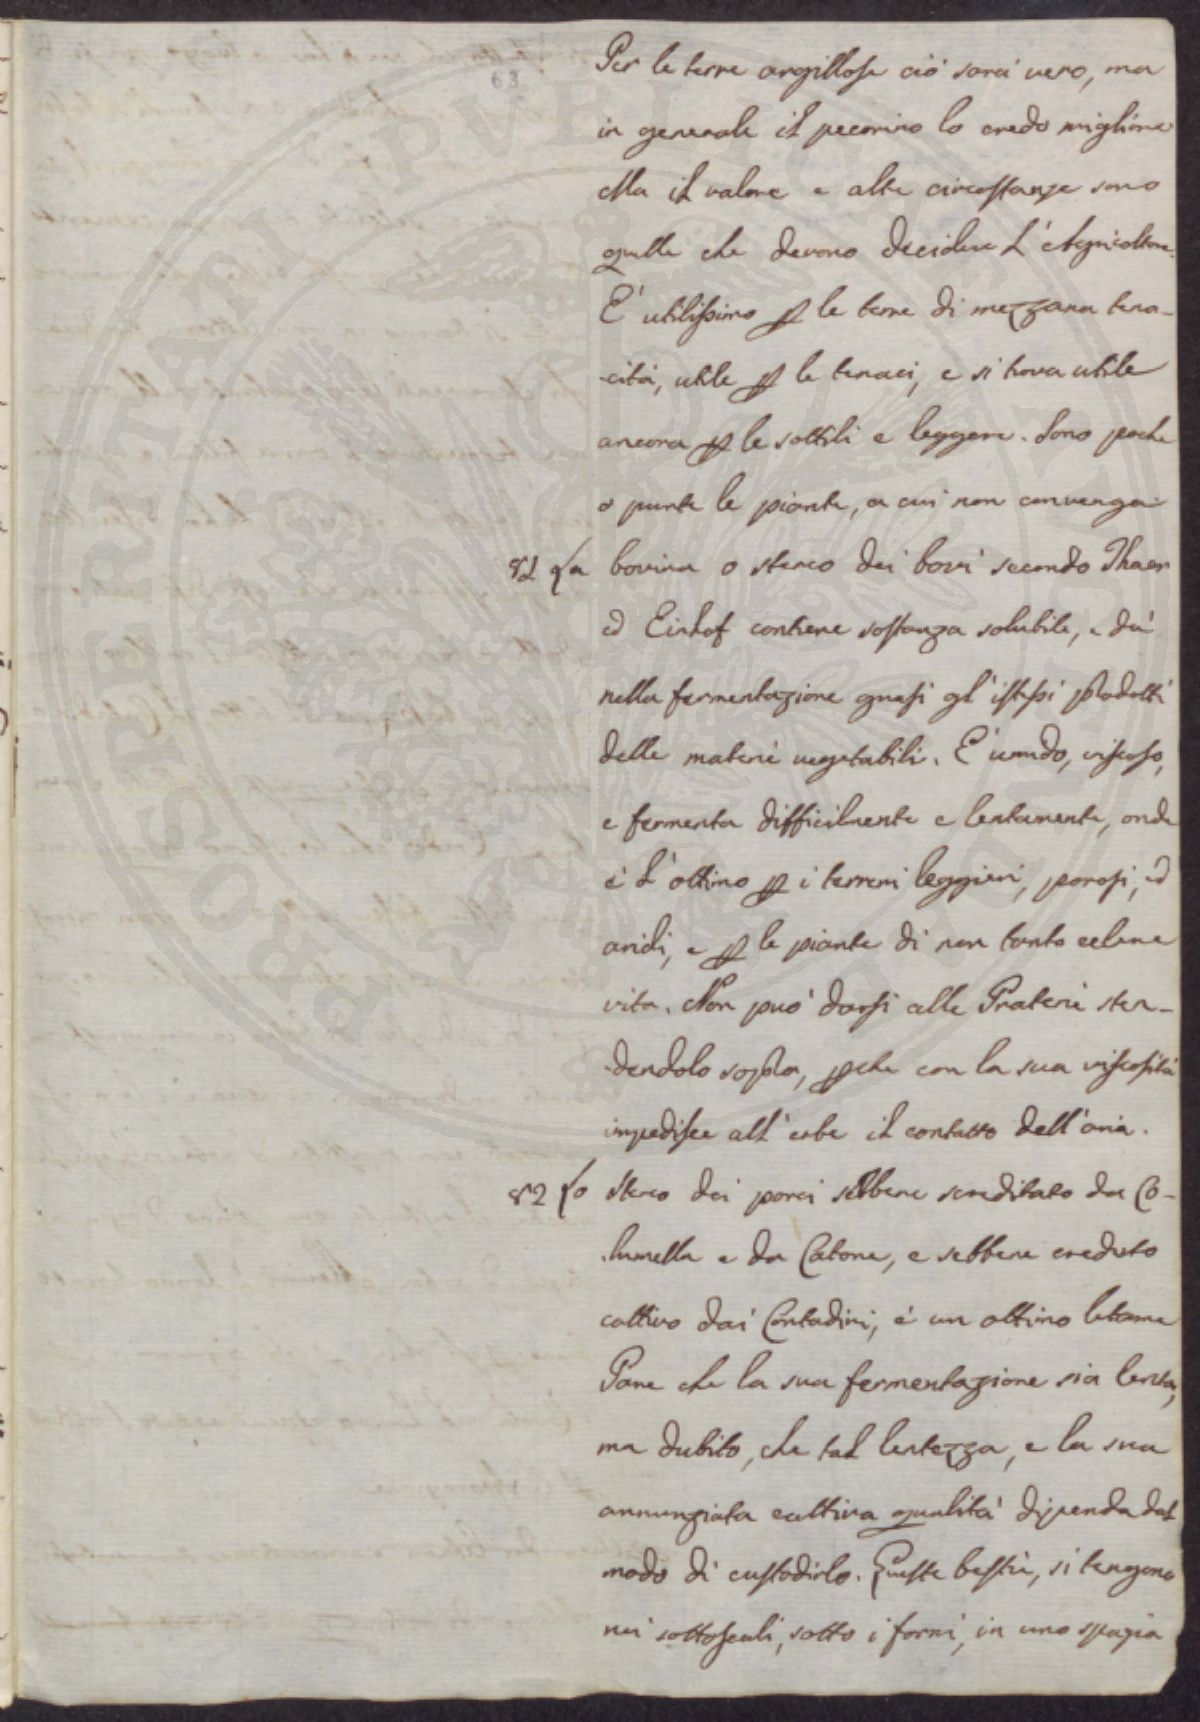 63
Per le terre argillose ciò sarà vero, ma
in generale il pecorino lo credo migliore
Ma il valore e altre circostanze sono
quelle che devono decidere l'Agricoltore.
E' utilissimo p le terre di mezzana tena-
-cità, utile p le tenaci, e si trova utile
ancora p le sottili e leggere. Sono poche
o punte le piante, a cui non convenga.
81 La bovina o sterco dei bovi secondo Thaer
ed Einhof contiene sostanza solubile, e dà
nella fermentazione quasi gl'istessi prodotti
delle materie vegetabili. E' umido, viscoso,
e fermenta difficilmente e lentamente, onde
è l'ottimo p i terreni leggieri, porosi, ed
aridi, e p le piante di non tanto celere
vita. Non può darsi alle Praterie sten-
-dendolo sopra, pche con la sua viscosità
impedisce all'erbe il contatto dell'aria.
82 Lo sterco dei porci sebbene screditato da Co-
-lumella e da Catone, e sebbene creduto
cattivo dai Contadini, è un ottimo letame
Pare che la sua fermentazione sia lenta,
ma dubito, che tal lentezza, e la sua
annunziata cattiva qualità dipenda dal
modo di custodirlo. Queste bestie, si tengono
nei sottoscali, sotto i forni, in uno spazio
PROSPERITATI PVBLICAE AVGENDAE